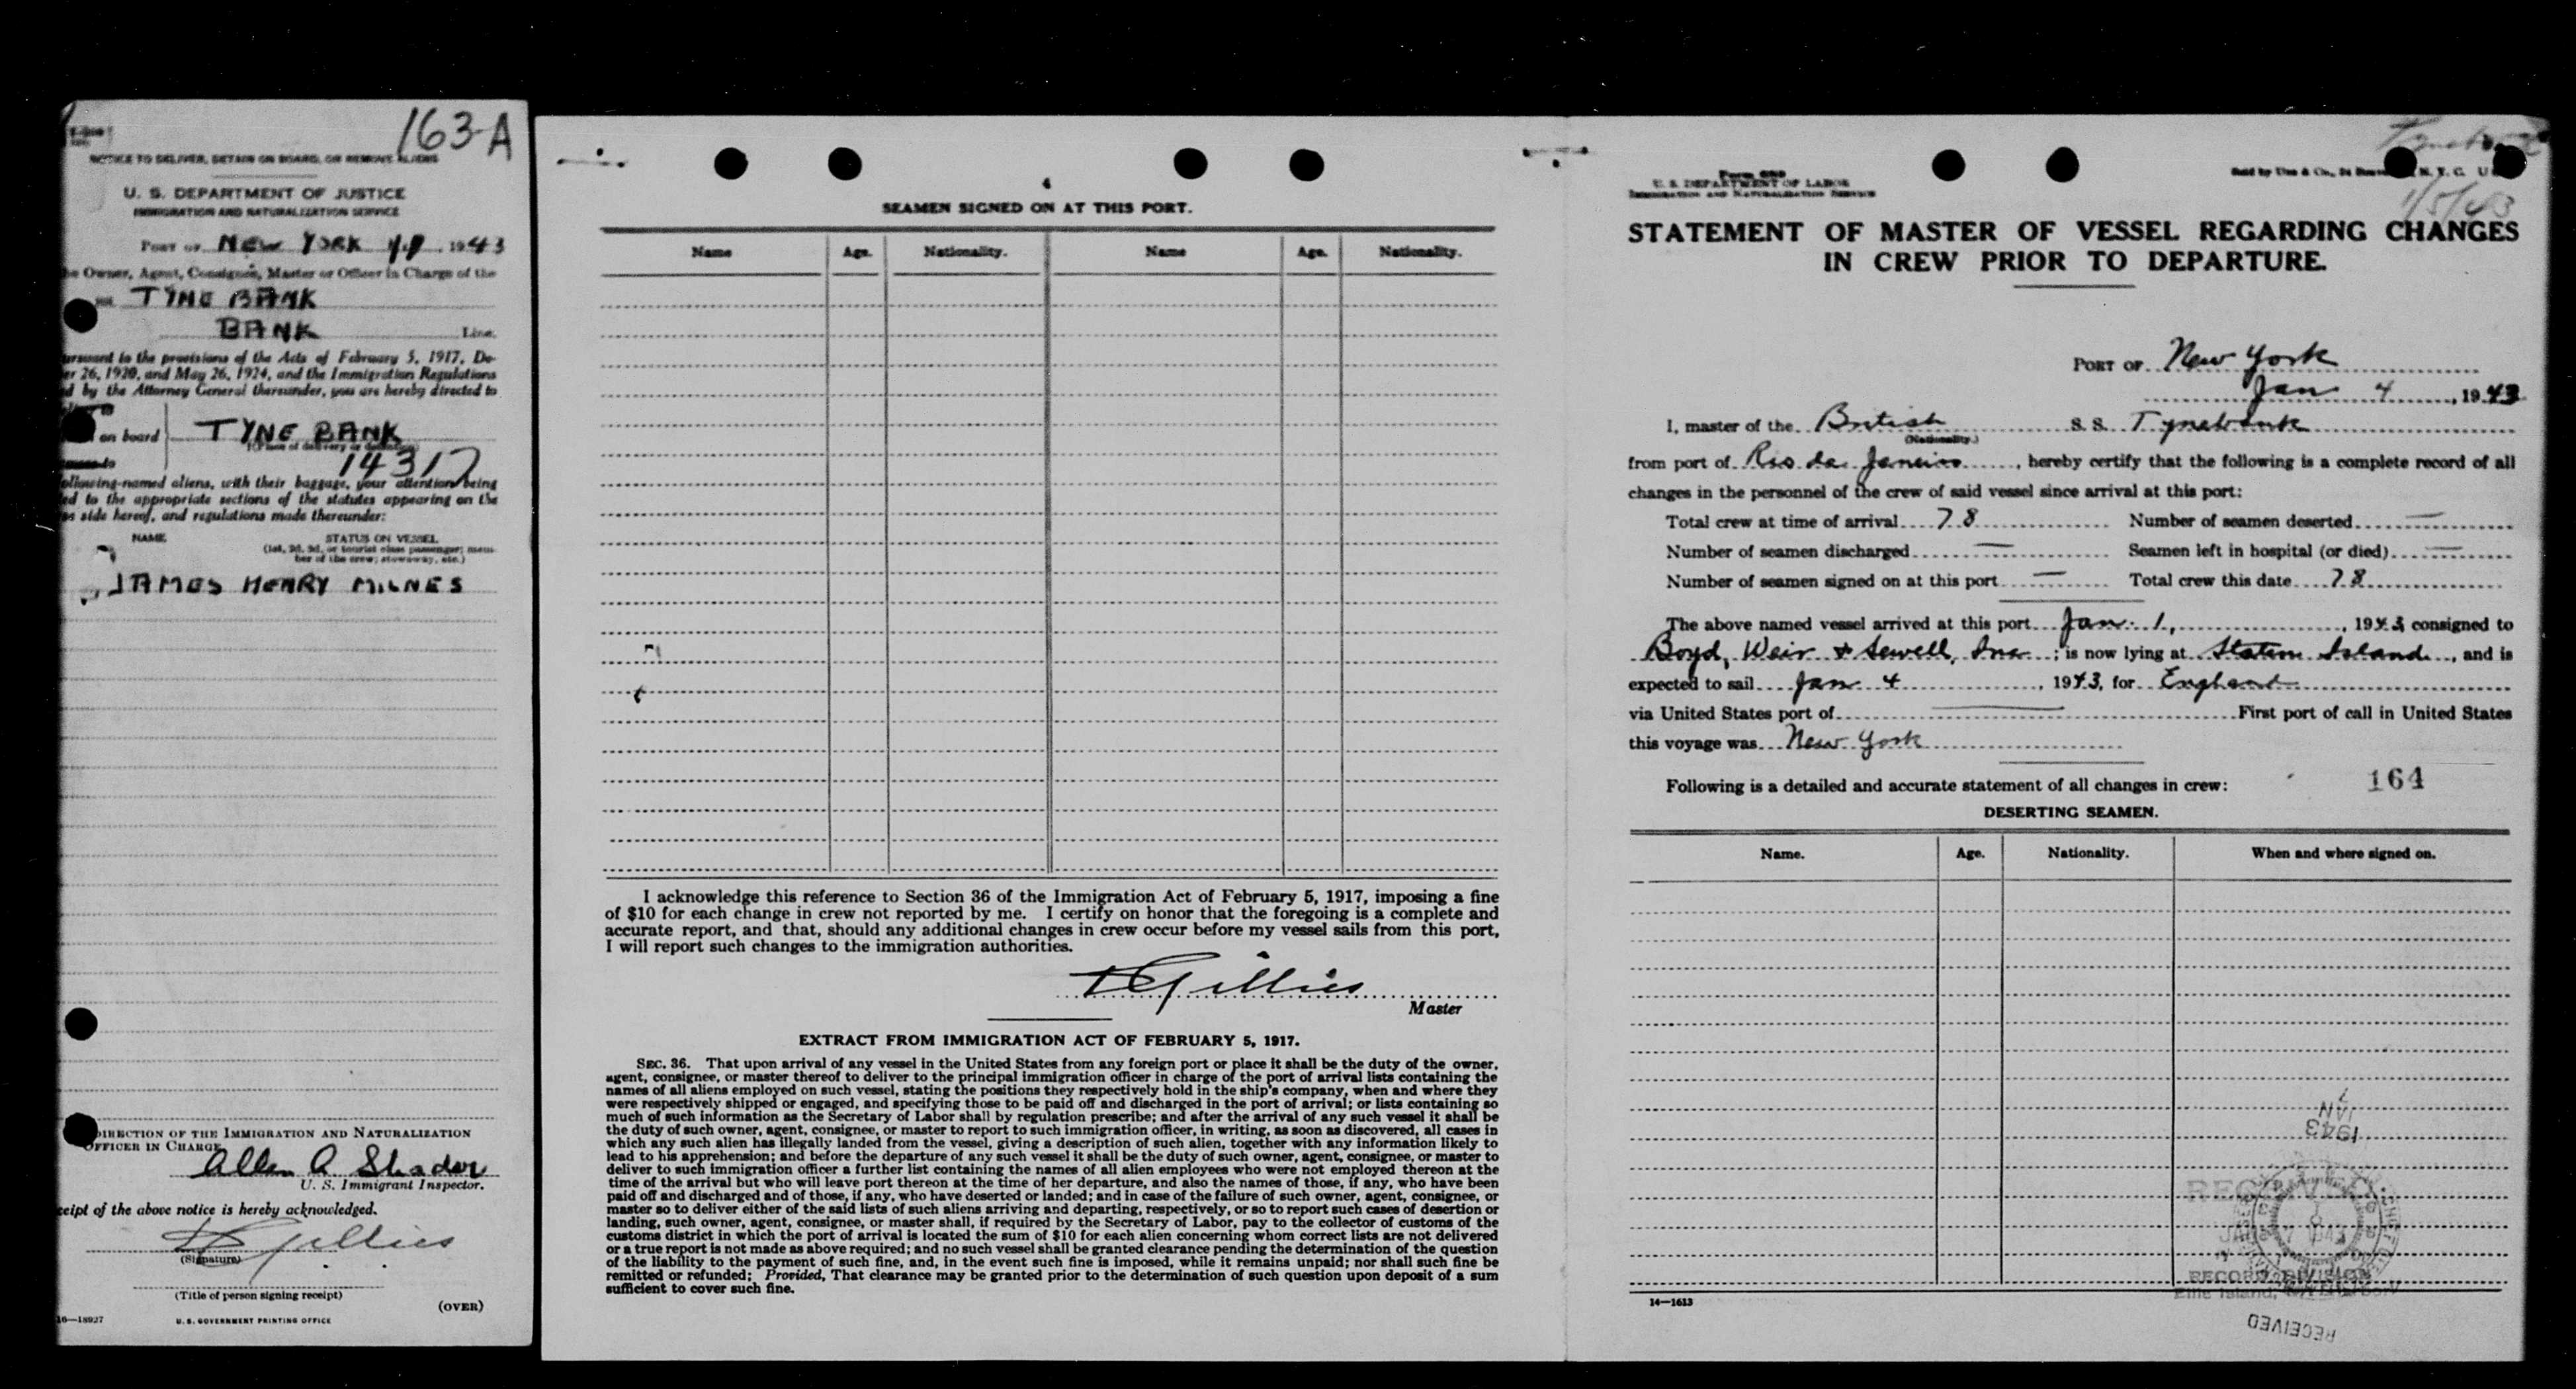 163-A
NOTICE TO DELIVER, DETAIN ON BOARD, OR REMOVE ALIENS
U. S. DEPARTMENT OF JUSTICE
IMMIGRATION AND NATURALIZATION SERVICE
PORT OF NEW YORK 1943
he Owner, Agent, Consignee, Master or Officer in Charge of the
TYNE BANK
BANK Line.
ursuant to the provisions of the Acts of February 5, 1917, De-
er 26, 1920, and May 26, 1924, and the Immigration Regulations
d by the Attorney General thereunder, you are hereby directed to
on board TYNE BANK
(Place of delivery or detention)
14317
ollowing-named aliens, with their baggage, your attention being
ed to the appropriate sections of the statutes appearing on the
se side hereof, and regulations made thereunder:
NAME STATUS ON VESSEL
(1st, 2d, 3d, or tourist class passenger; mem-
ber of the crew; stowaway, etc.)
JAMES HENRY MILNES
DIRECTION OF THE IMMIGRATION AND NATURALIZATION
OFFICER IN CHARGE
Allen A Shader
U. S. Immigrant Inspector.
ceipt of the above notice is hereby acknowledged.
Gillies
(Signature)
(Title of person signing receipt)
(OVER)
16—18927 U. S. GOVERNMENT PRINTING OFFICE
SEAMEN SIGNED ON AT THIS PORT.
Name Age. Nationality. Name Age. Nationality.
I acknowledge this reference to Section 36 of the Immigration Act of February 5, 1917, imposing a fine
of $10 for each change in crew not reported by me. I certify on honor that the foregoing is a complete and
accurate report, and that, should any additional changes in crew occur before my vessel sails from this port,
I will report such changes to the immigration authorities.
Gillies
Master
EXTRACT FROM IMMIGRATION ACT OF FEBRUARY 5, 1917.
SEC. 36. That upon arrival of any vessel in the United States from any foreign port or place it shall be the duty of the owner,
agent, consignee, or master thereof to deliver to the principal immigration officer in charge of the port of arrival lists containing the
names of all aliens employed on such vessel, stating the positions they respectively hold in the ship's company, when and where they
were respectively shipped or engaged, and specifying those to be paid off and discharged in the port of arrival; or lists containing so
much of such information as the Secretary of Labor shall by regulation prescribe; and after the arrival of any such vessel it shall be
the duty of such owner, agent, consignee, or master to report to such immigration officer, in writing, as soon as discovered, all cases in
which any such alien has illegally landed from the vessel, giving a description of such alien, together with any information likely to
lead to his apprehension; and before the departure of any such vessel it shall be the duty of such owner, agent, consignee, or master to
deliver to such immigration officer a further list containing the names of all alien employees who were not employed thereon at the
time of the arrival but who will leave port thereon at the time of her departure, and also the names of those, if any, who have been
paid off and discharged and of those, if any, who have deserted or landed; and in case of the failure of such owner, agent, consignee, or
master so to deliver either of the said lists of such aliens arriving and departing, respectively, or so to report such cases of desertion or
landing, such owner, agent, consignee, or master shall, if required by the Secretary of Labor, pay to the collector of customs of the
customs district in which the port of arrival is located the sum of $10 for each alien concerning whom correct lists are not delivered
or a true report is not made as above required; and no such vessel shall be granted clearance pending the determination of the question
of the liability to the payment of such fine, and, in the event such fine is imposed, while it remains unpaid; nor shall such fine be
remitted or refunded; Provided, That clearance may be granted prior to the determination of such question upon deposit of a sum
sufficient to cover such fine.
Form 689
U. S. DEPARTMENT OF LABOR
IMMIGRATION AND NATURALIZATION SERVICE
1/5/43
STATEMENT OF MASTER OF VESSEL REGARDING CHANGES
IN CREW PRIOR TO DEPARTURE.
PORT OF New York
Jan 4, 1943
I, master of the British S. S. Tynebank
(Nationality.)
from port of Rio de Janeiro, hereby certify that the following is a complete record of all
changes in the personnel of the crew of said vessel since arrival at this port:
Total crew at time of arrival 78 Number of seamen deserted —
Number of seamen discharged — Seamen left in hospital (or died) —
Number of seamen signed on at this port — Total crew this date 78
The above named vessel arrived at this port Jan. 1, 1943, consigned to
Boyd, Weir & Sewell, Inc; is now lying at Staten Island, and is
expected to sail Jan 4, 1943, for England
via United States port of — First port of call in United States
this voyage was New York
Following is a detailed and accurate statement of all changes in crew: 164
DESERTING SEAMEN.
Name. Age. Nationality. When and where signed on.
JAN 7 1943
RECEIVED
JAN 7 1943
RECORD DIVISION
Ellis Island,
14—1613
RECEIVED